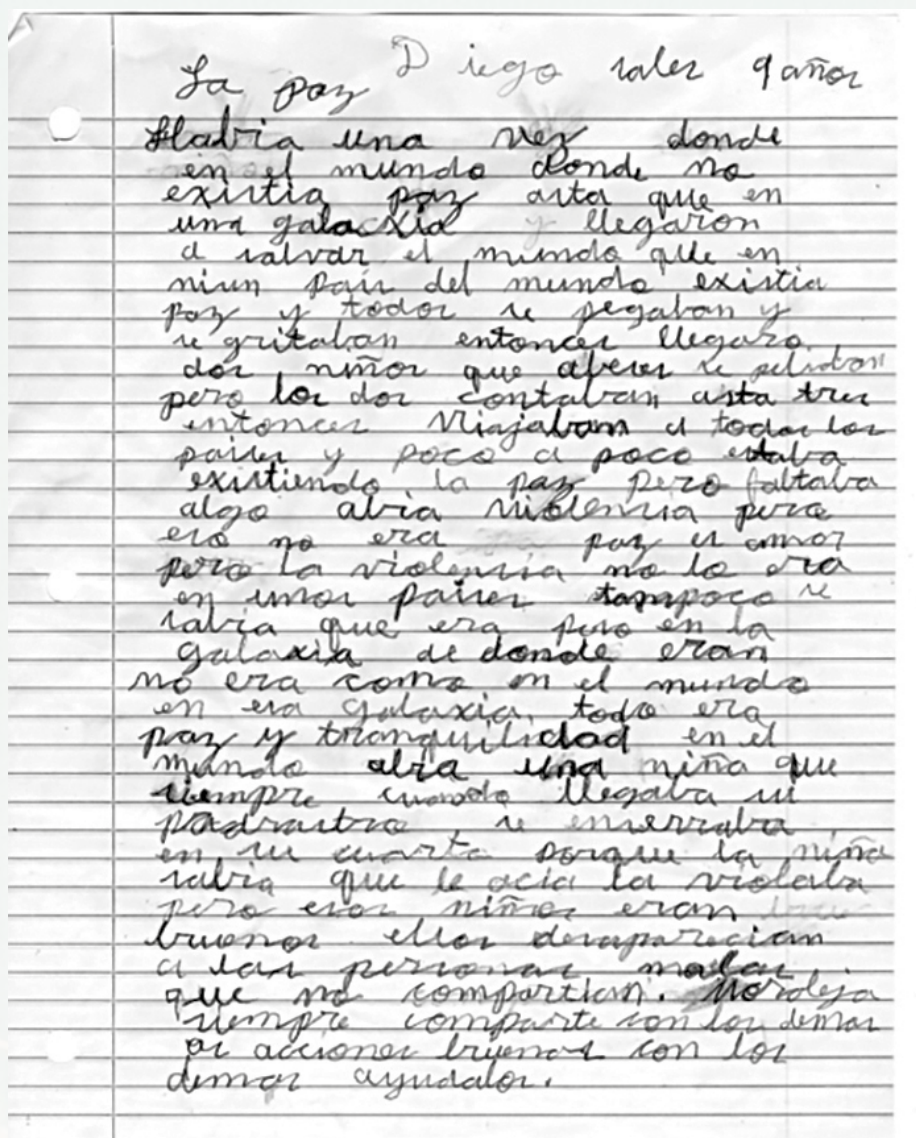 Diego sales 9 años
La paz
Habia una vez donde
en el mundo donde no
existia paz asta que en
una galacxia y llegaron
a salvar el mundo que en
niun pais del mundo existia
paz y todos se pegaban y
se gritaban entonces llegaro
dos niños que abeses se peliaban
pero los dos contaban asta tres
entonces viajaban a todos los
paises y poco a poco estaba
existiendo la paz pero faltaba
algo abia violencia pero
eso no era paz es amor
pero la violencia no lo era
en unos paises tampoco se
sabia que era pero en la
galaxia de donde eran
no era como en el mundo
en esa galaxia todo era
paz y tranquilidad en el
mundo abia una niña que
siempre cuando llegaba su
padrastro se enserraba
en su cuarto porque la niña
sabia que le acia la violaba
pero esos niños eran
buenos ellos desaparecian
a las personas malas
que no compartian. Moraleja
siempre comparte con los demas
as acciones buenas con los
demas ayudalos.